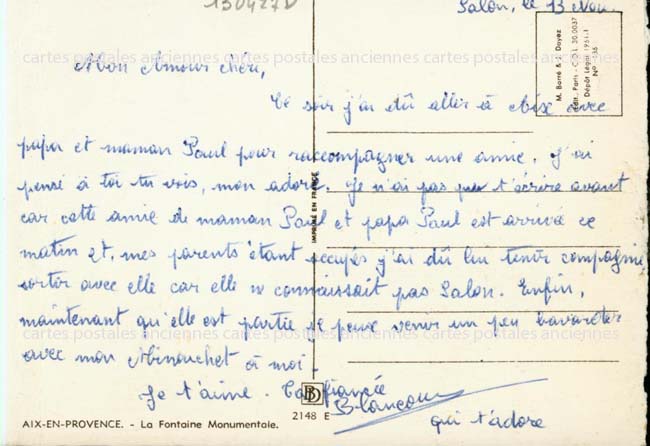 130427V
Salon, le 13 Nov.
M. Barré & J. Dayez
Edit. Paris - C.C.I. 30.0037
Dépôt Légal 1951-1
cartes postales anciennes cartes postales anciennes cartes postales anciennes
Mon Amour chéri,
Ce soir j'ai dû aller à Aix avec
papa et maman Paul pour raccompagner une amie. J'ai
pensé à toi tu vois, mon adoré. Je n'ai pas pu t'écrire avant
car cette amie de maman Paul et papa Paul est arrivée ce
matin et, mes parents étant occupés j'ai dû lui tenir compagnie
sortir avec elle car elle ne connaissait pas Salon. Enfin,
maintenant qu'elle est partie je peux venir un peu bavarder
cartes postales anciennes cartes postales anciennes cartes postales anciennes
avec mon Minouchet à moi.
Je t'aime. Ta fiancée
qui t'adore
IMPRIMÉ EN FRANCE
BD
2148 E
AIX-EN-PROVENCE. - La Fontaine Monumentale.